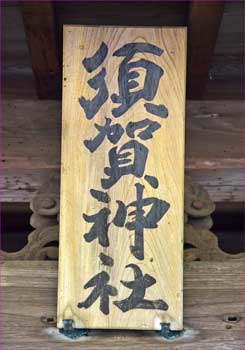 須賀神社